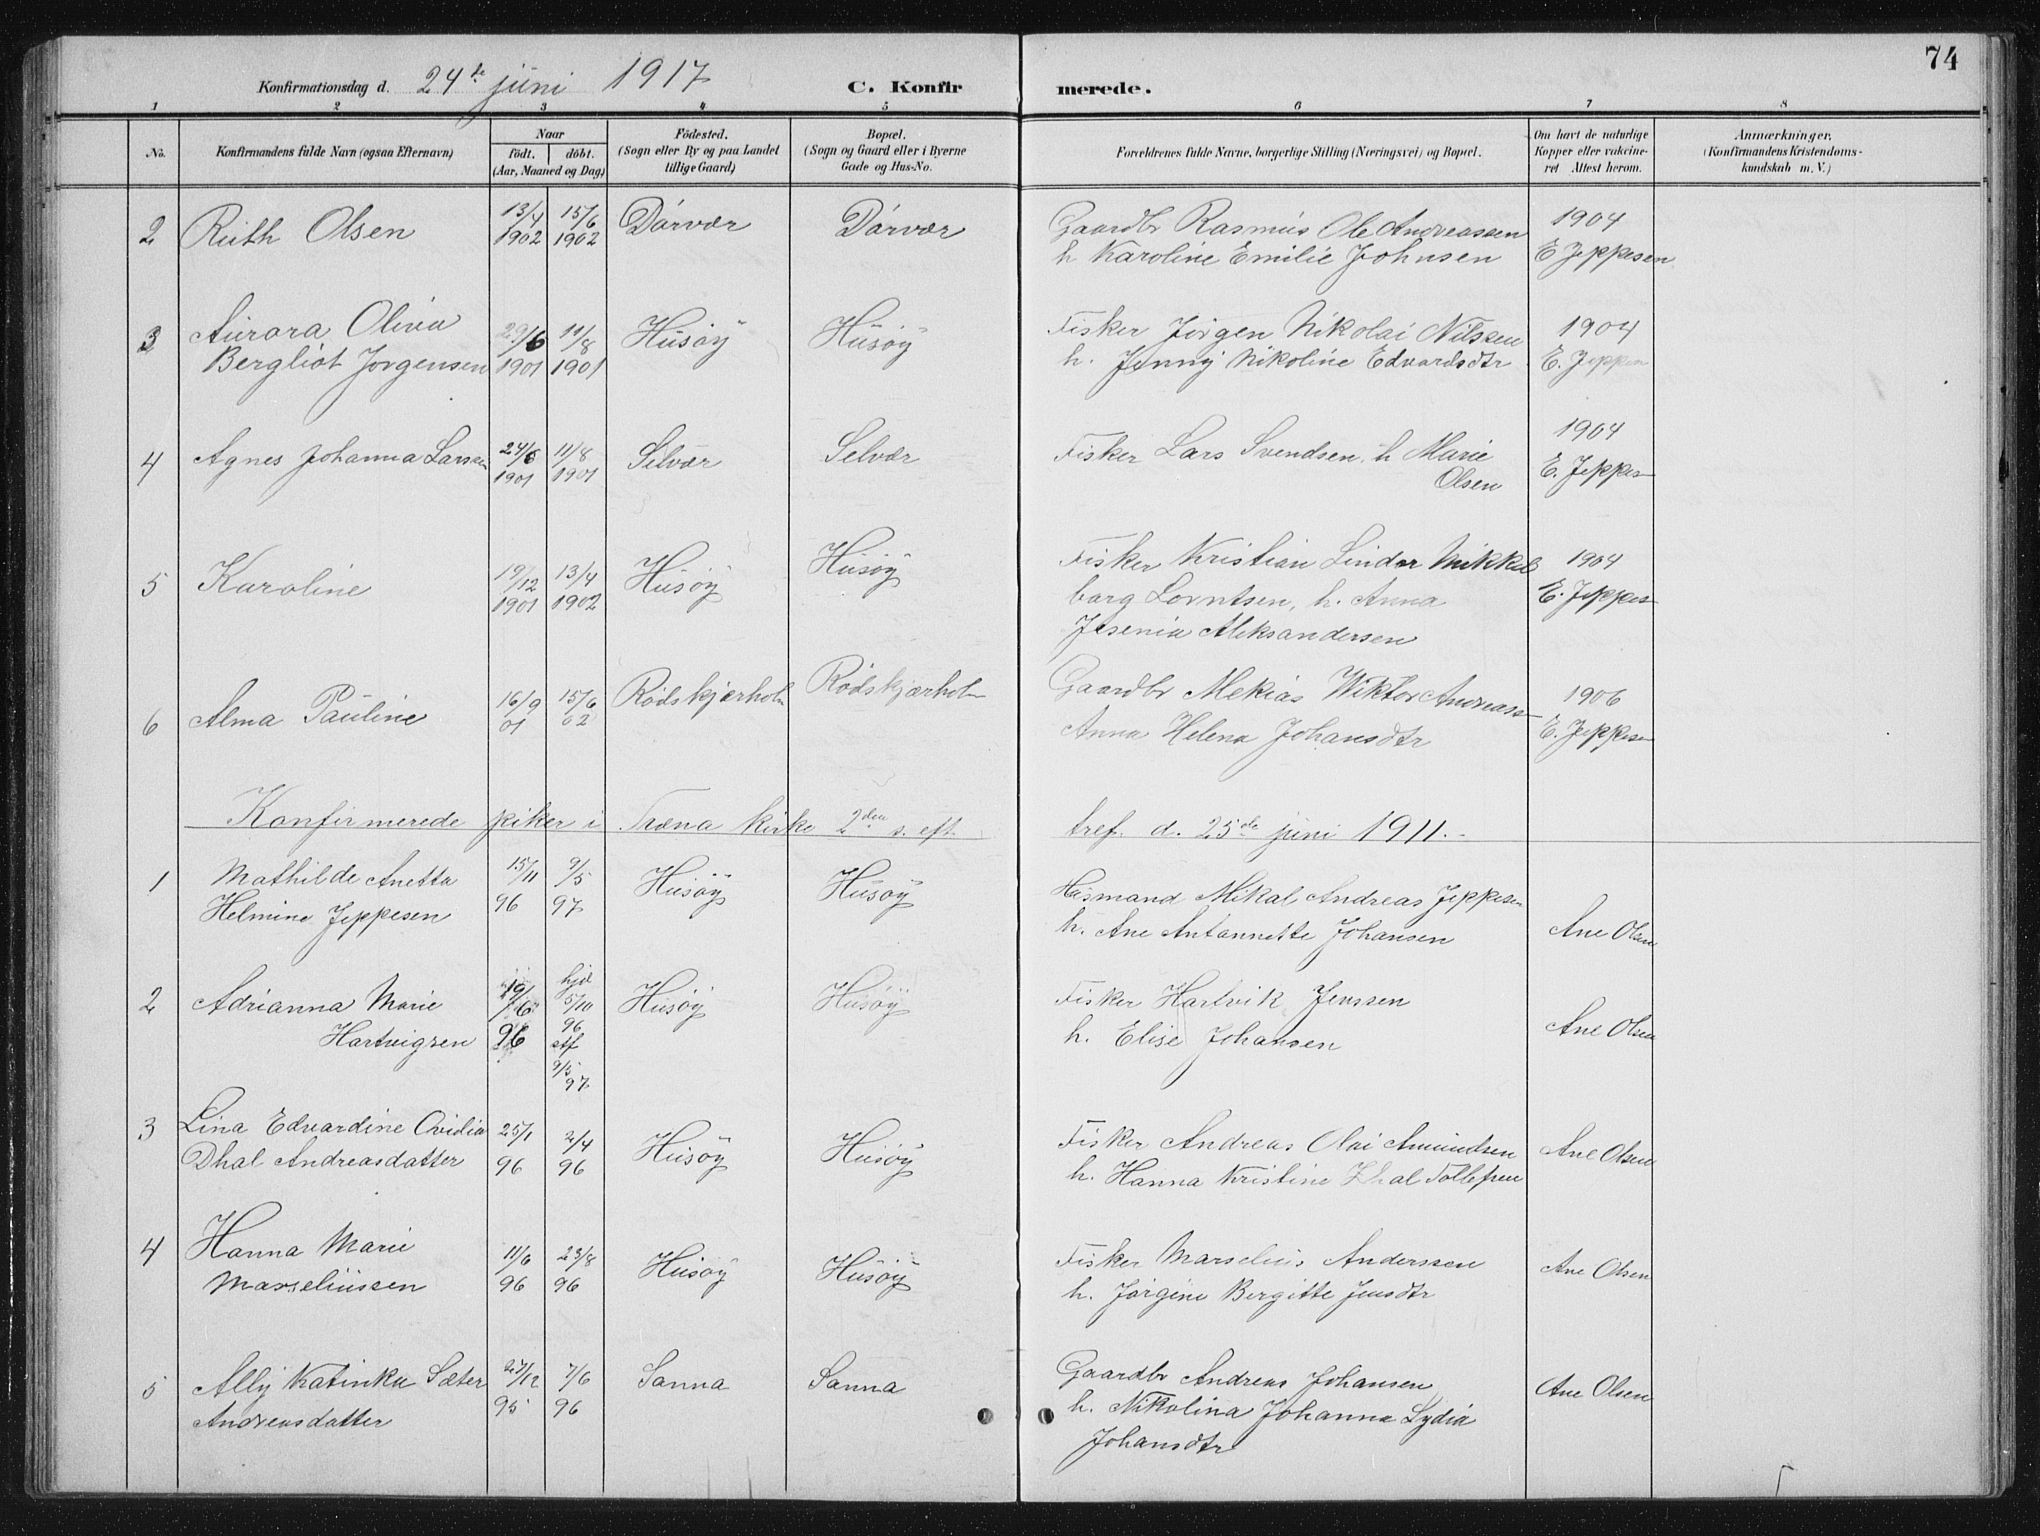 74
Konfirmationsdag d. 24de juni 1917 C. Konfirmerede.
1 2 3 4 5 6 7 8
No. Konfirmandens fulde Navn (ogsaa Efternavn) Naar födt. döbt. (Aar, Maaned og Dag) Födested. (Sogn eller By og paa Landet tillige Gaard) Bopæl. (Sogn og Gaard eller i Byerne Gade og Hus-No. Forældrenes fulde Navne, borgerlige Stilling (Næringsvei) og Bopæl. Om havt de naturlige Kopper eller vakcineret Attest herom. Anmærkninger. (Konfirmandens Kristendomskundskab m. V.)
2 Ruth Olsen 13/4 1902 15/6 1902 Dørvær Dørvær Gaardbr Rasmus Ole Andreassen 1904
h Karoline Emilie Johnsen E Jeppesen
3 Aurora Olivia 29/6 1901 11/8 1901 Husøy Husøy Fisker Jørgen Nikolai Nilssen 1904
Bergliot Jørgensen h. Jenny Nikoline Edvardsdtr E. Jeppesen
4 Agnes Johanna Larssen 24/6 1901 11/8 1901 Selvær Selvær Fisker Lars Svendsen, h Marie 1904
Olsen E. Jeppesen
5 Karoline 19/12 1901 13/4 1902 Husøy Husøy Fisker Kristian Linder Mikkel 1904
borg Lorntsen, h. Anna E. Jeppesen
Jesenia Aleksandersen
6 Alma Pauline 16/9 01 15/6 02 Rødskjærholm Rødskjærholm Gaardbr Mekias Wiktor Andreass 1906
Anna Helena Johansdtr E. Jeppesen
Konfirmerede piker i Træna kirke 2den s. eft. tref. d. 25de juni 1911.
1 Mathilde Anetta 15/11 96 9/5 97 Husøy Husøy Husmand Mikal Andreas Jeppesen
Helmine Jeppesen h. Ane Antannette Johansen Ane Olsen
2 Adrianna Marie 19/6 96 hjd 5/10 96 stf 9/5 97 Husøy Husøy Fisker Hartvik Jenssen
Hartvigsen h. Elise Johansen Ane Olsen
3 Lina Edvardine Ovidia 25/1 96 2/4 96 Husøy Husøy Fisker Andreas Olai Amundsen Ane Olsen
Dhal Andreasdatter h. Hanna Kristine Dhal Tollefsen
4 Hanna Marie 11/6 96 23/8 96 Husøy Husøy Fisker Marselius Anderssen Ane Olsen
Marseliussen h. Jørgine Bergitte Jensdtr
5 Ally Katinka Sæter 27/12 95 7/6 96 Sanna Sanna Gaardbr Andreas Johansen Ane Olsen
Andreasdatter h. Nikolina Johanna Lydia
Johansdtr